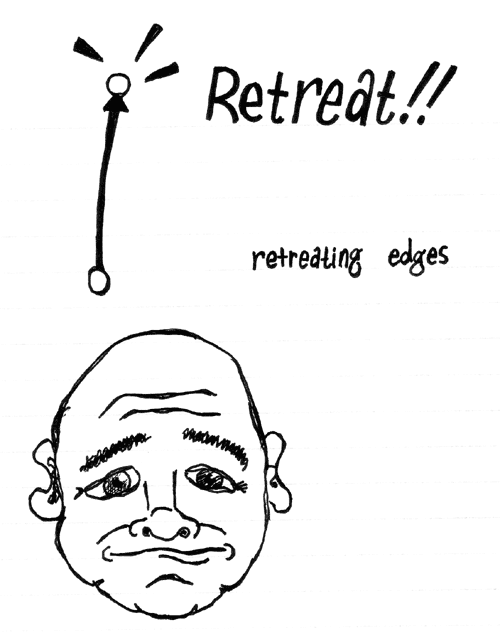 Retreat!!
retreating edges